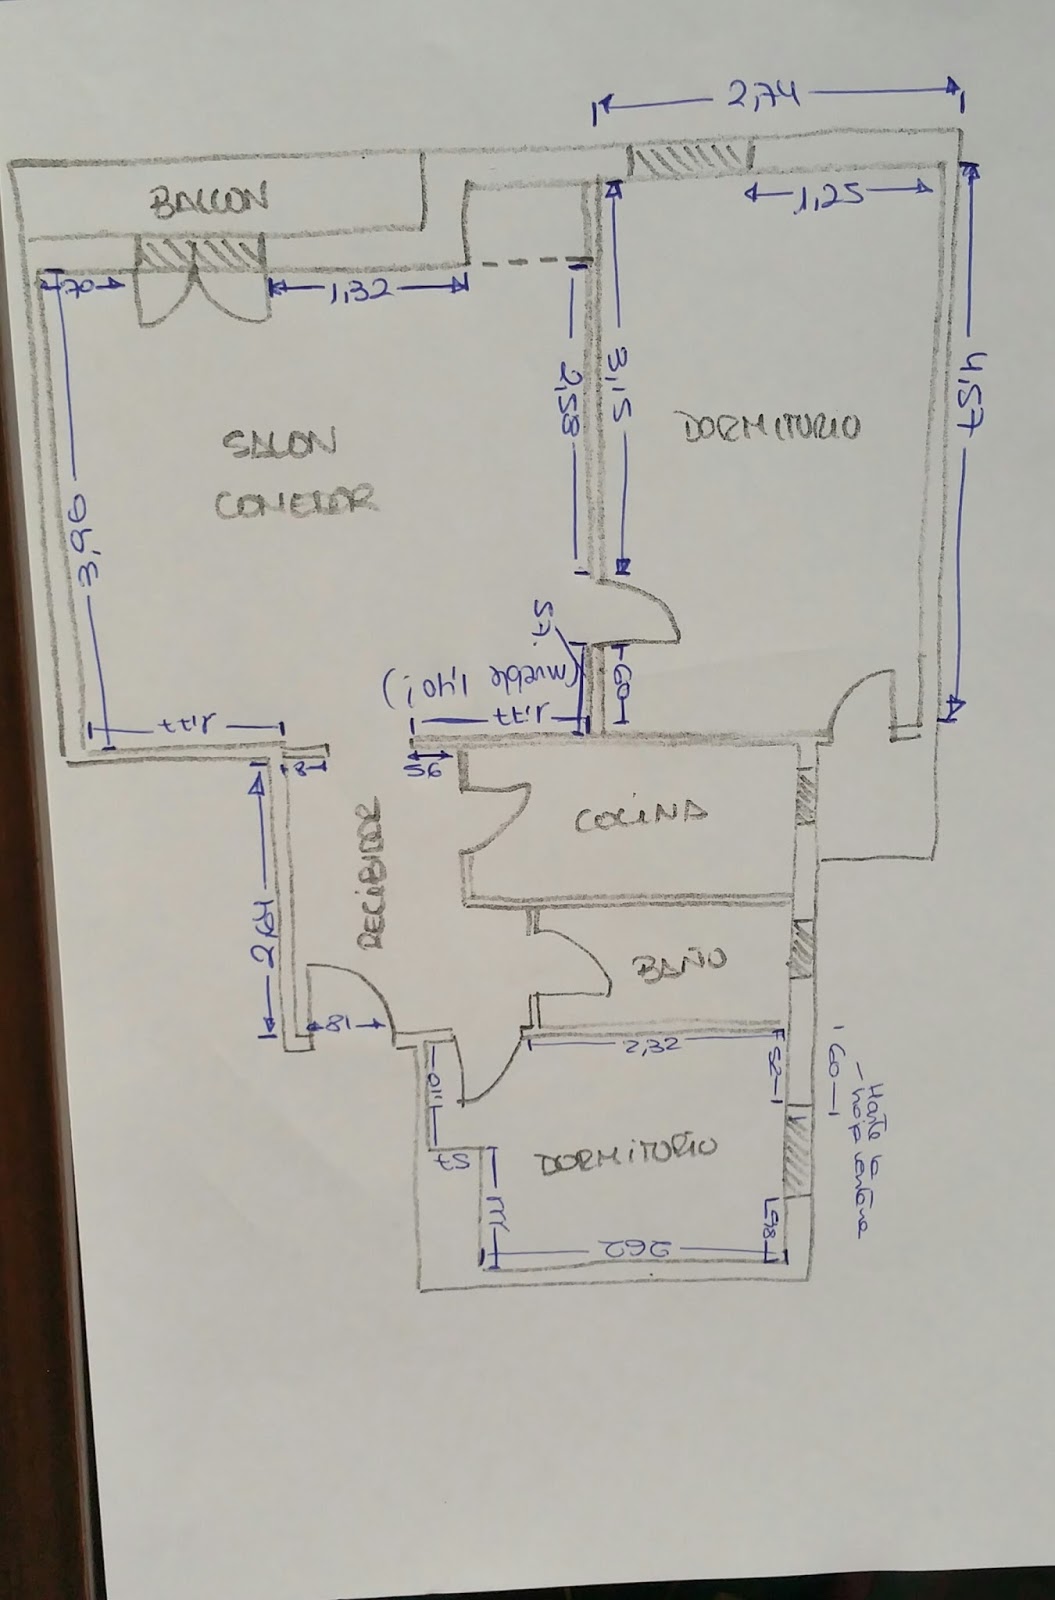 2,74
BALCON
1,25
70
1,32
3,15
2,58
4,57
DORMITORIO
SALON
COMEDOR
3,96
57.
(mueble 1,40¡)
60
1,77
1,77
56
COCINA
RECIBIDOR
2,64
BAÑO
81
2,32
52
60
Hasta la
hoja ventana
1,10
57
DORMITORIO
1,11
98
262